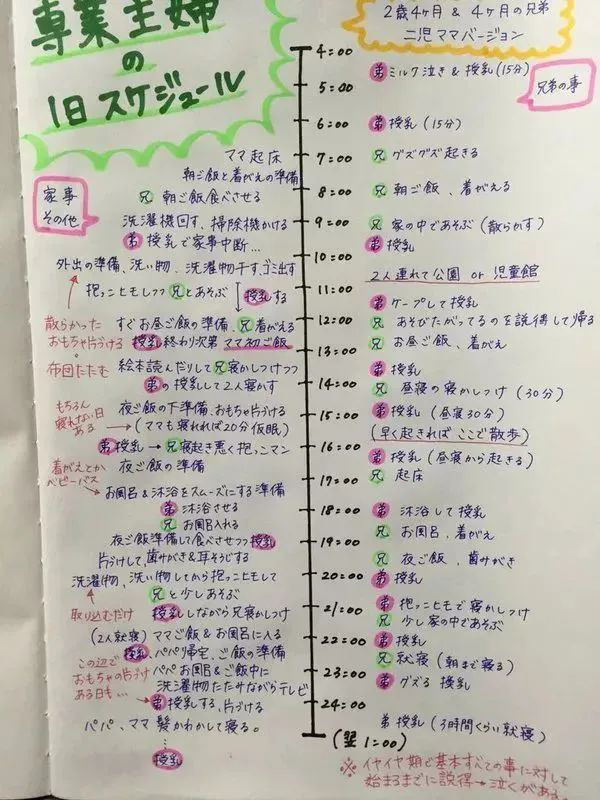 専業主婦
の
1日スケジュール
2歳4ヶ月 & 4ヶ月の兄弟
二児ママバージョン
家事
その他
兄弟の事
ママ起床
朝ご飯と着がえの準備
兄 朝ご飯食べさせる
洗濯機回す、掃除機かける
弟 授乳で家事中断…
外出の準備、洗い物、洗濯物干す、ゴミ出す
抱っこヒモしつつ兄とあそぶ
授乳する
散らかった
おもちゃ片づける
すぐお昼ご飯の準備、兄着がえる
授乳終わり次第 ママ初ご飯
布団たたむ
絵本読んだりして兄寝かしつけつつ
弟の授乳して2人寝かす
もちろん
寝れない日
ある
夜ご飯の下準備、おもちゃ片づける
(ママも寝れれば20分仮眠)
弟授乳→兄寝起き悪く抱っこマン
着がえとか
ベビーバス
夜ご飯の準備
お風呂&沐浴をスムーズにする準備
弟 沐浴させる
兄 お風呂入れる
夜ご飯準備して食べさせつつ授乳
片づけして、歯みがき&耳そうじする
洗濯物、洗い物してから抱っこヒモして
兄と少しあそぶ
取り込むだけ
授乳しながら兄寝かしつけ
(2人就寝) ママご飯&お風呂に入る
授乳 パパ帰宅、ご飯の準備
この辺で
おもちゃの片づけ
ある日も…
パパお風呂&ご飯中に
洗濯物たたみながらテレビ
弟授乳する、片づける
パパ、ママ髪かわかして寝る。
⋮
授乳
4:00
5:00
6:00
7:00
8:00
9:00
10:00
11:00
12:00
13:00
14:00
15:00
16:00
17:00
18:00
19:00
20:00
21:00
22:00
23:00
24:00
(翌1:00)
弟 ミルク泣き & 授乳(15分)
弟 授乳 (15分)
兄 グズグズ起きる
兄 朝ご飯、着がえる
兄 家の中であそぶ (散らかす)
弟 授乳
2人連れて公園 or 児童館
弟 ケープして授乳
兄 あそびたがってるのを説得して帰る
兄 お昼ご飯、着がえ
弟 授乳
兄 昼寝の寝かしつけ (30分)
弟 授乳 (昼寝30分)
(早く起きればここで散歩)
弟 授乳 (昼寝から起きる)
兄 起床
弟 沐浴して授乳
兄 お風呂、着がえ
兄 夜ご飯、歯みがき
弟 授乳
弟 抱っこヒモで寝かしつけ
兄 少し家の中であそぶ
弟 授乳
兄 就寝 (朝まで寝る)
弟 グズる 授乳
弟 授乳 (3時間くらい就寝)
※イヤイヤ期で基本すべての事に対して
始まるまでに説得→泣くがある。